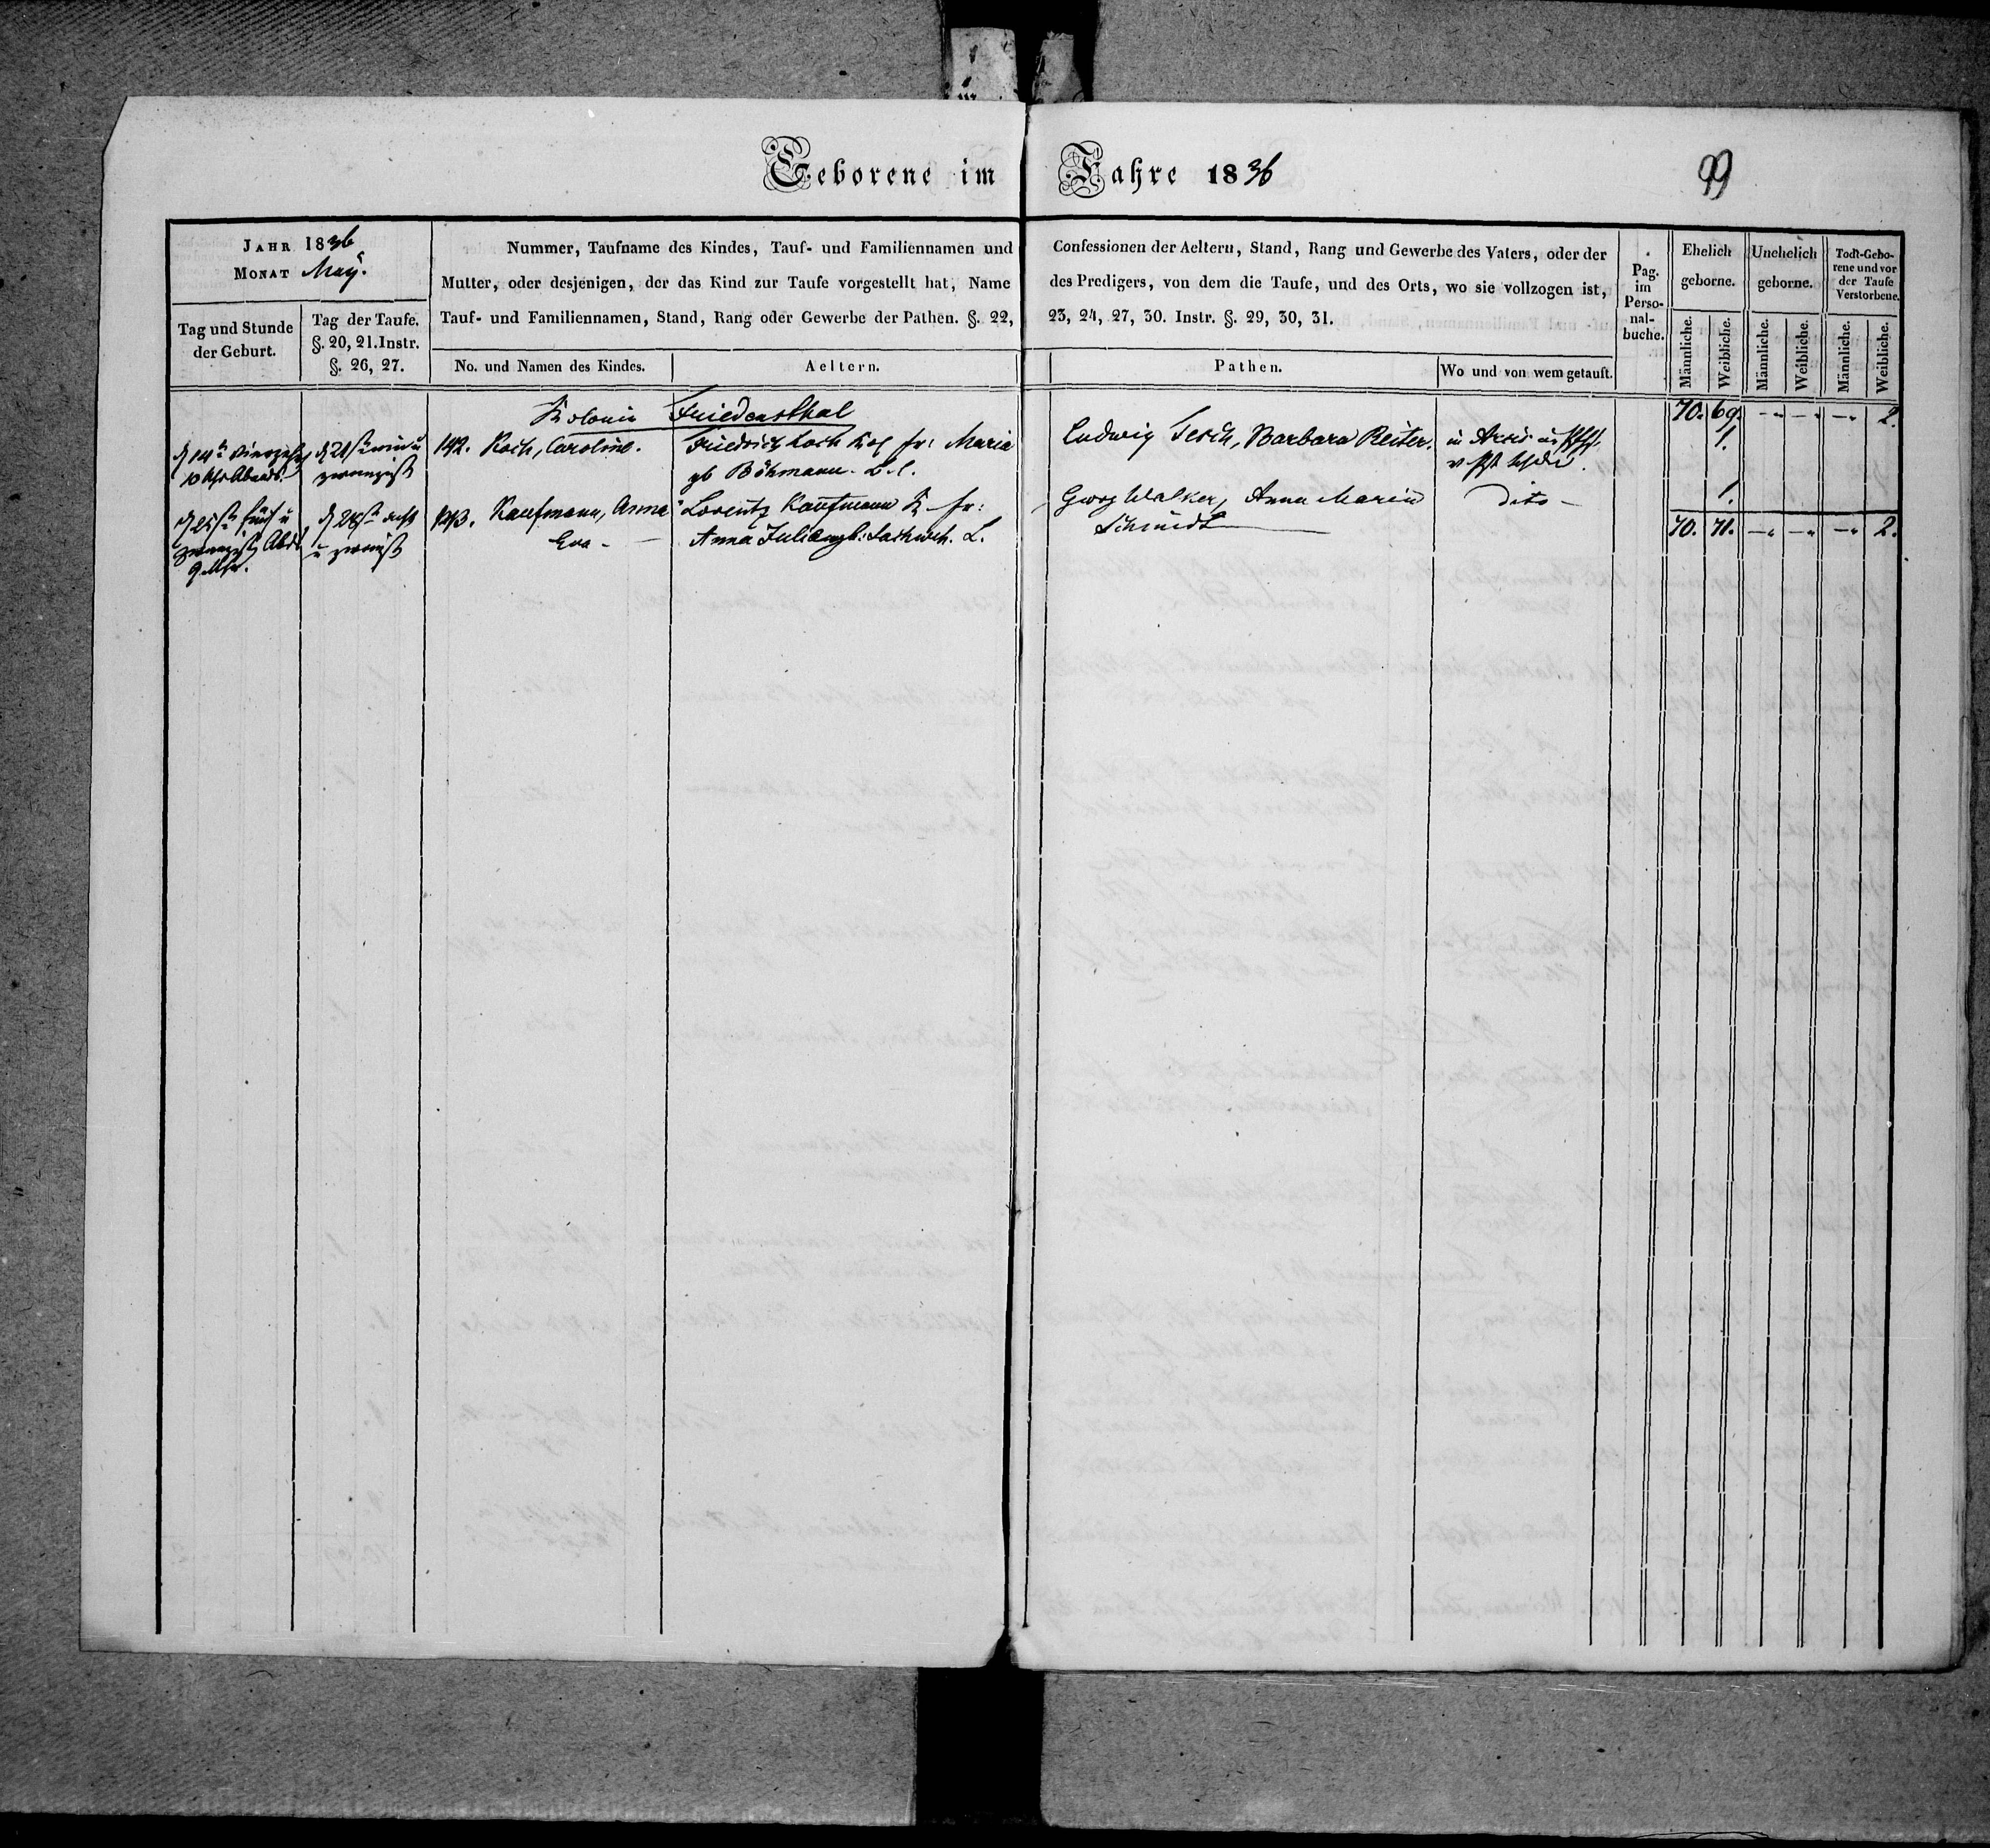 Geborene im Jahre 1836
99
JAHR 1836
MONAT May.
Tag und Stunde
der Geburt.
Tag der Taufe.
§. 20, 21. Instr.
§. 26, 27.
Nummer, Taufname des Kindes, Tauf- und Familiennamen und
Mutter, oder desjenigen, der das Kind zur Taufe vorgestellt hat, Name
Tauf- und Familiennamen, Stand, Rang oder Gewerbe der Pathen. §. 22,
No. und Namen des Kindes.
Aeltern.
Confessionen der Aeltern, Stand, Rang und Gewerbe des Vaters, oder der
des Predigers, von dem die Taufe, und des Orts, wo sie vollzogen ist,
23, 24, 27, 30. Instr. §. 29, 30, 31.
Pathen.
Wo und von wem getauft.
Pag.
im
Perso-
nal-
buche.
Ehelich
geborne.
Unehelich
geborne.
Todt-Gebo-
rene und vor
der Taufe
Verstorbene.
Männliche.
Weibliche.
Männliche.
Weibliche.
Männliche.
Weibliche.
Kolonie Friedensthal
70. 69. -„- -„- -„- 2.
d 14t vierzehn
10 Uhr Abends.
d 21st ein u
zwanzigst
142. Koch, Caroline.
Friedrich Koch Kol fr: Maria
gb Böhmann. L.
Ludwig Tesch, Barbara Reiter.
1.
d 25st fünf u
zwanzigst Abds
9 Uhr.
d 28st acht
u zwanzigst
143. Kaufmann, Anna
Eva -
Lorentz Kaufmann K fr:
Anna Juliana gb: L.
Georg Walker, Anna Maria
Schmidt
dito -
1.
70. 71. -„- -„- -„- 2.